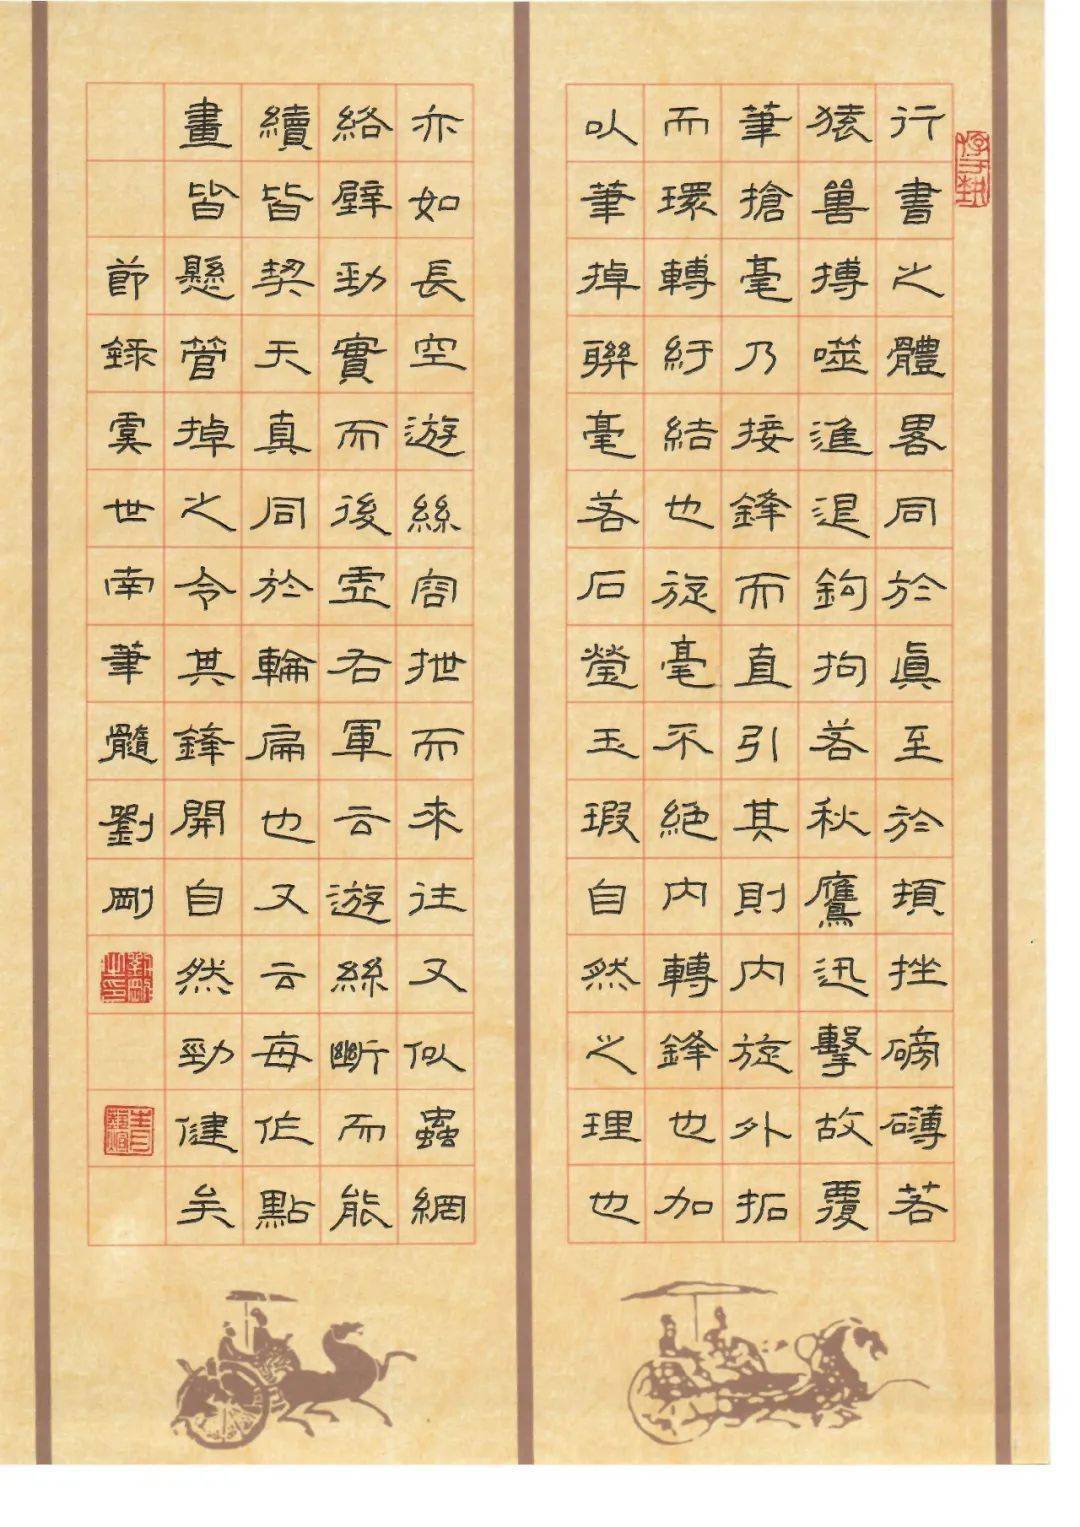 行書之體畧同於眞至於頓挫磅礴若
猿嘼搏噬進退鉤拘若秋鷹迅擊故覆
筆搶毫乃接鋒而直引其則內旋外拓
而環轉紆結也旋毫不絕內轉鋒也加
以筆掉聯毫若石瑩玉瑕自然之理也
亦如長空遊絲容抴而來往又似蟲網
絡壁勁實而後虛右軍云遊絲斷而能
續皆契天真同於輪扁也又云每作點
畫皆懸管掉之令其鋒開自然勁健矣
節錄虞世南筆髓劉剛
劉剛之印